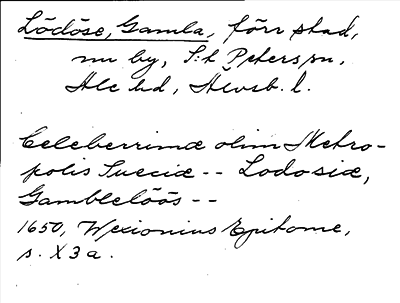 Lödöse, Gamla, förr stad,
nu by, S:t Peters sn,
Ale hd, Älvsb. l.
Celeberrimæ olim Metro-
polis Sueciæ -- Lodosiæ,
Gamblelöös --
1650, Wexionius Epitome,
s. X3a.